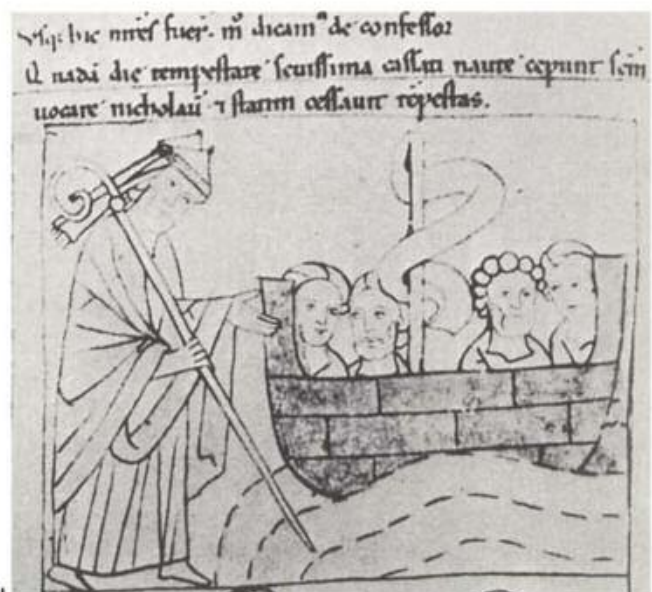 Vsq; huc mr̃es fuer̃. m̊ dicam⁹ de confessor
Q uadā die tempestate seuissima q̃ssati naute ceperunt scm̃
uocare nicholau᷑ ⁊ statim cessauit tēpestas.